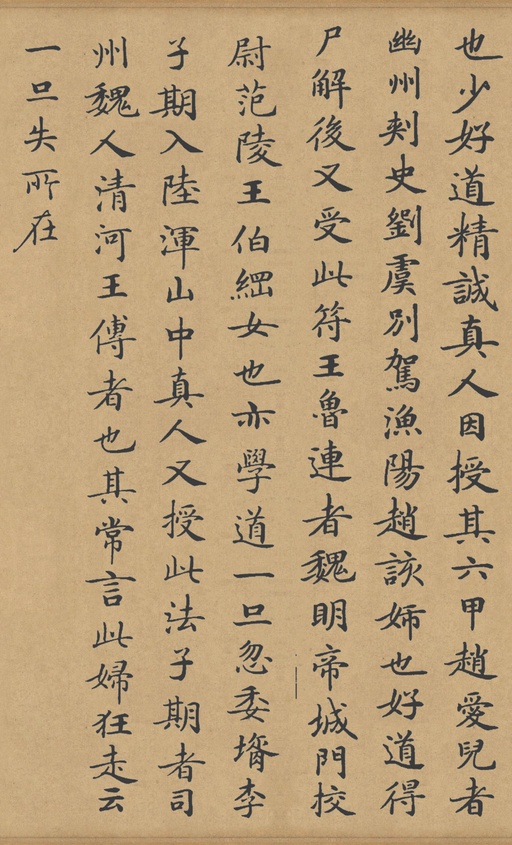 也少好道精誠真人因授其六甲趙愛兒者
幽州刾史劉虞別駕漁陽趙該姉也好道得
尸解後又受此符王魯連者魏明帝城門挍
尉范陵王伯綑女也亦學道一旦忽委壻李
子期入陸渾山中真人又授此法子期者司
州魏人清河王傅者也其常言此婦狂走云
一旦失所在